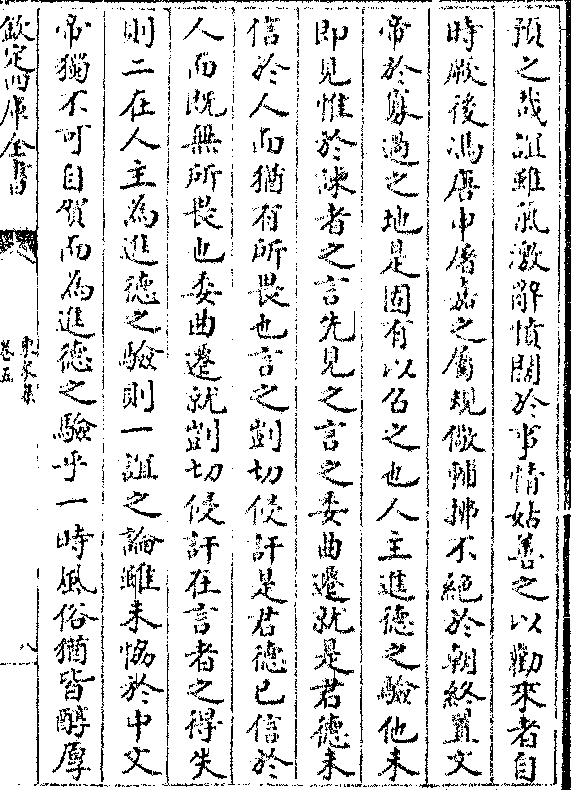 預之哉誼雖氣激辭憤闊於事情姑善之以勸來者自
時厥後馮唐申屠嘉之屬規儆輔拂不絶於朝終置文
帝於寡過之地是固有以召之也人主進德之驗他未
即見惟於諫者之言先見之言之委曲遷就是君德未
信於人而猶有所畏也言之剴切侵訐是君德已信於
人而既無所畏也委曲遷就剴切侵訐在言者之得失
則二在人主為進德之驗則一誼之論雖未恊於中文
帝獨不可自賀而為進德之驗乎一時風俗猶皆醇厚
欽定四庫全書
卷五
八